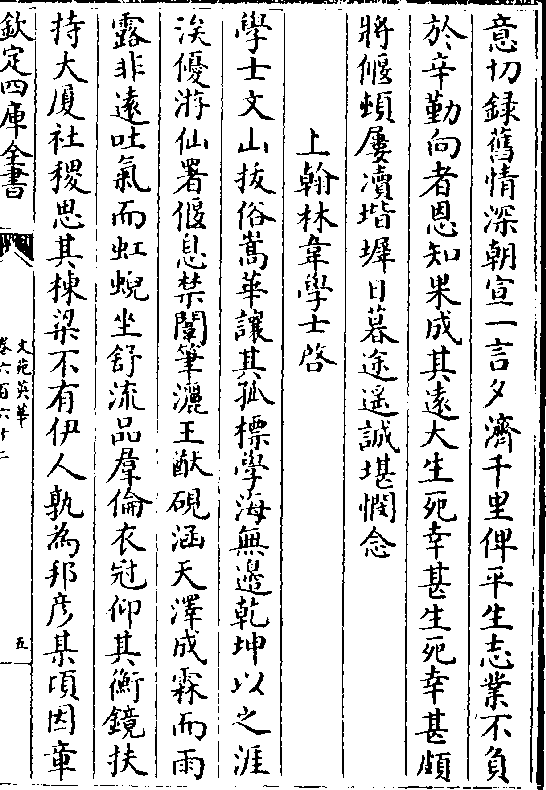 意切録舊情深朝宣一言夕濟千里俾平生志業不負
於辛勤向者恩知果成其遠大生死幸甚生死幸甚頋
將偃頓屢瀆堦墀日暮途遥誠堪憫念
上翰林韋學士啓
學士文山拔俗嵩華讓其孤標學海無邊乾坤以之涯
涘優游仙署偃息禁闈筆灑王猷硯涵天澤成霖而雨
露非遠吐氣而虹蜺坐舒流品羣倫衣冠仰其衡鏡扶
持大厦社稷思其棟梁不有伊人孰為邦彦某頃因章
欽定四庫全書
文苑英華
卷六百六十二
五